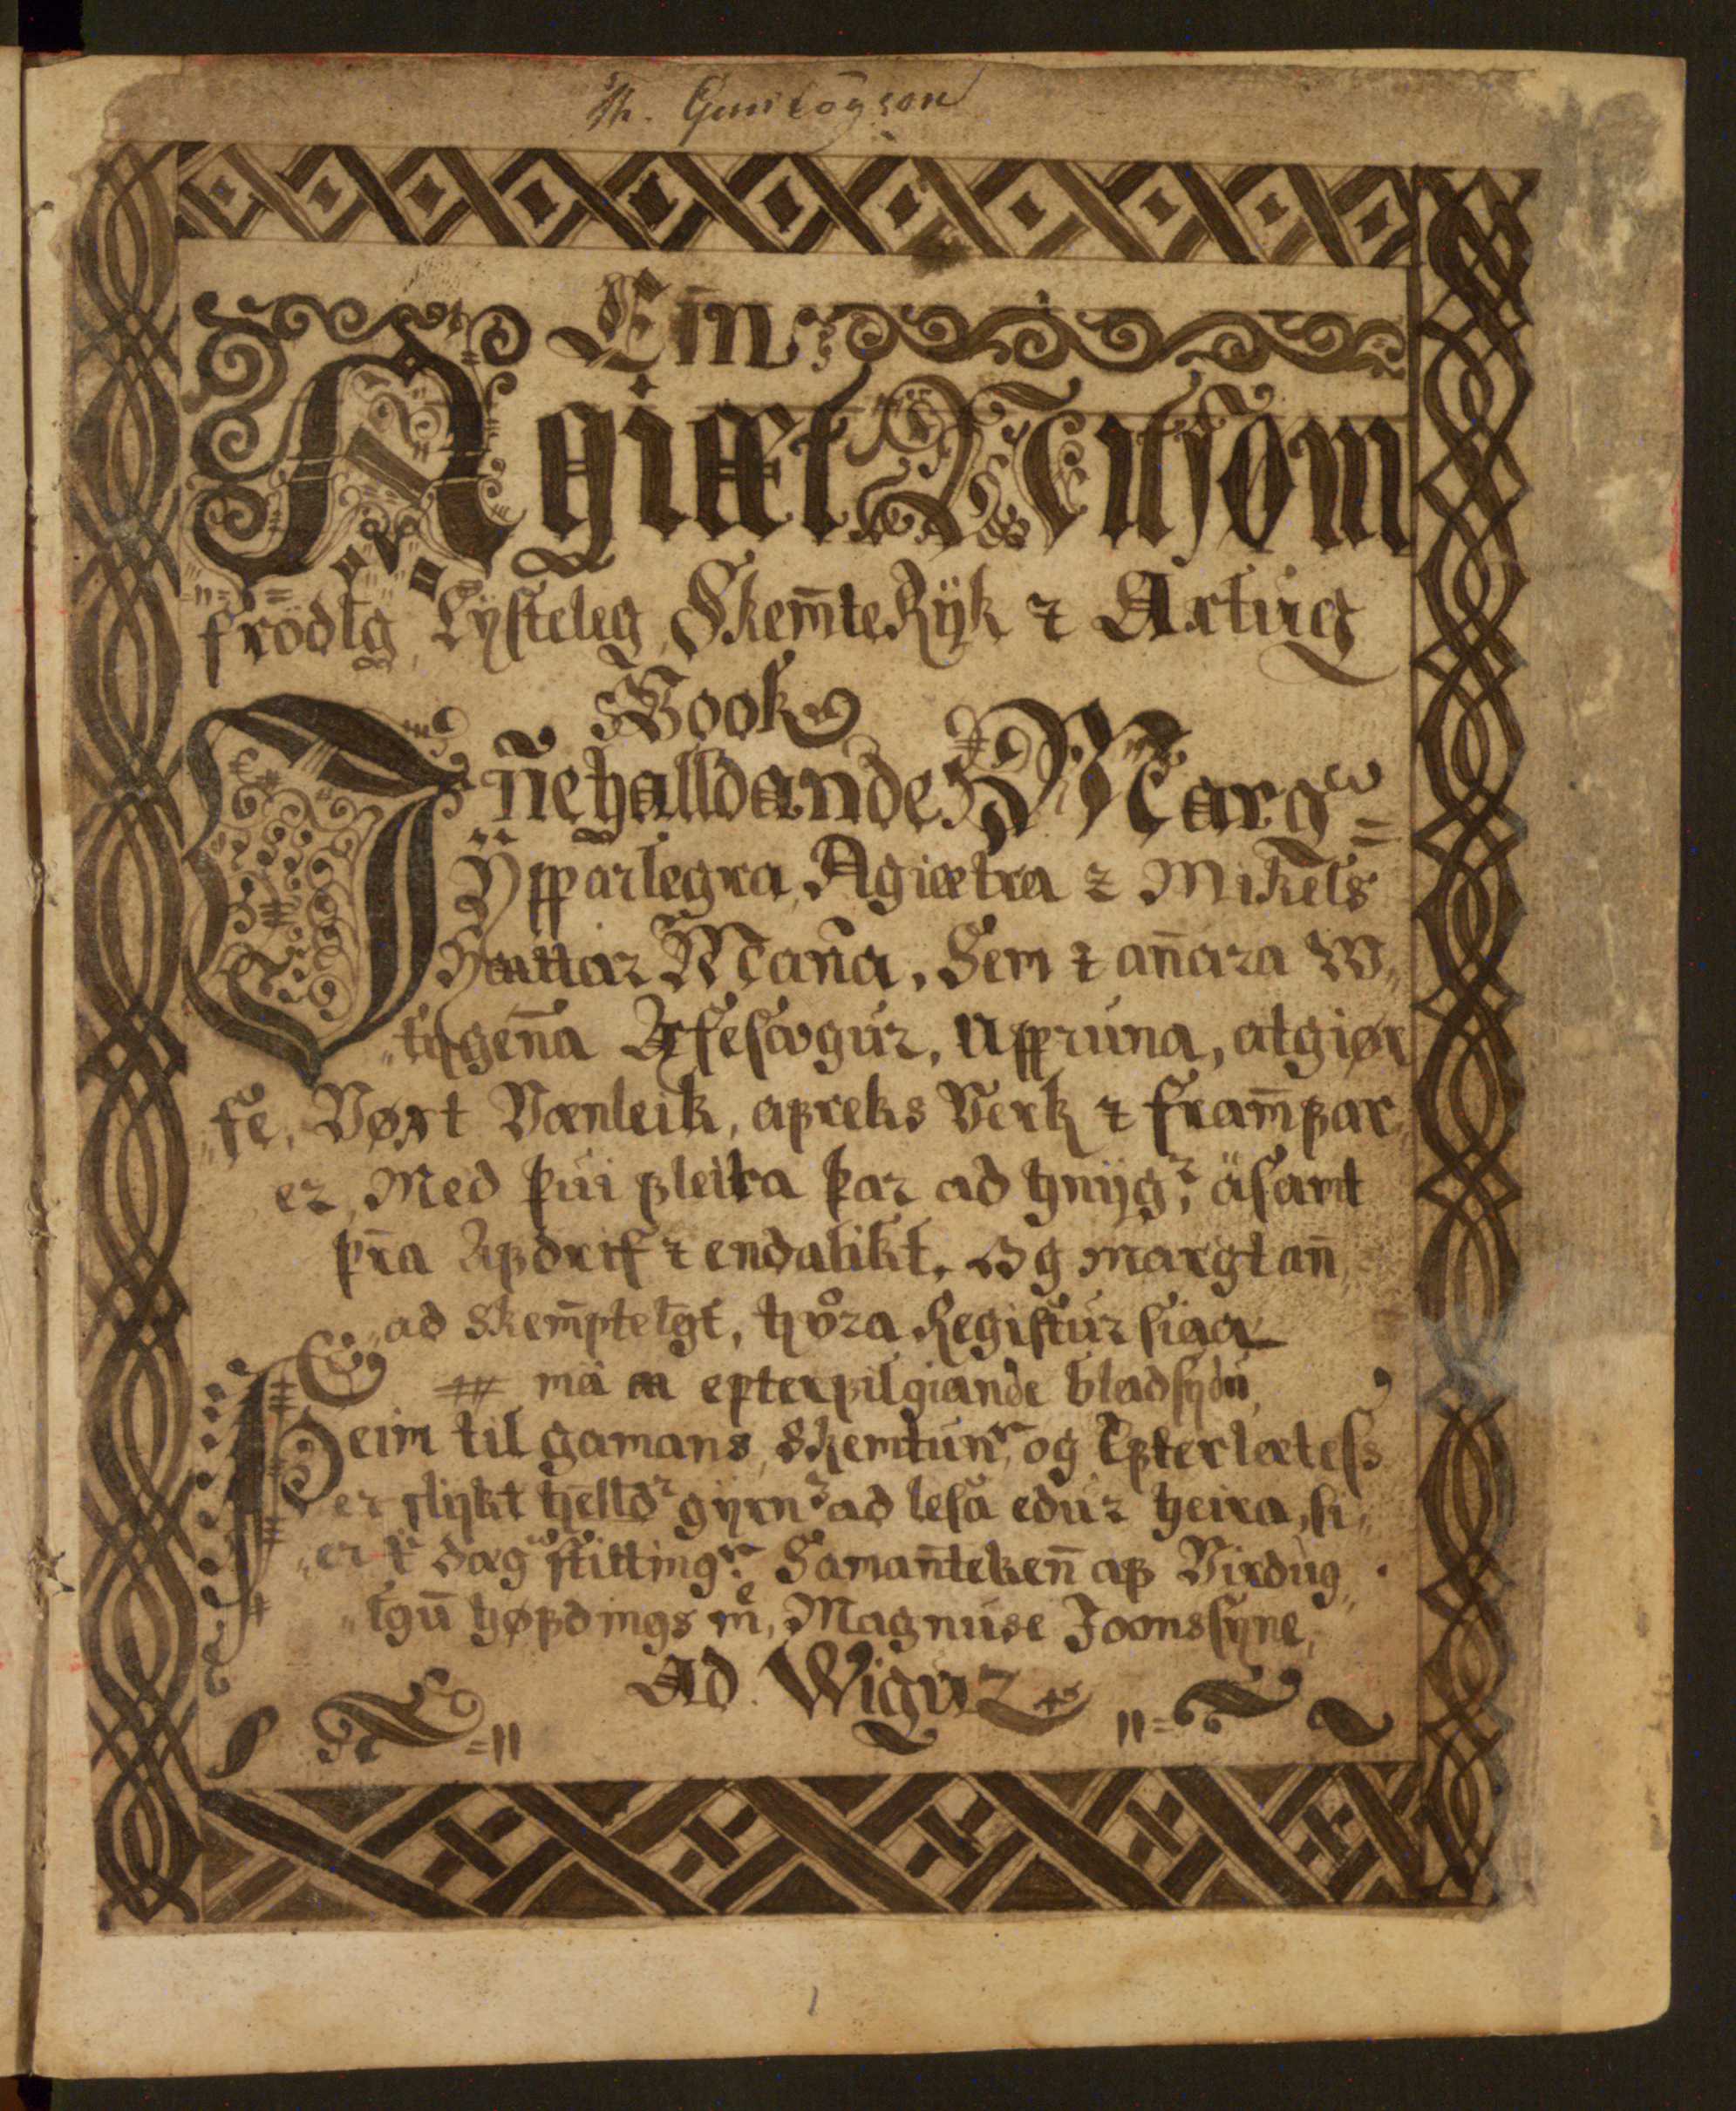 Th. Gunlögson
Ein
Agiæt Nitsom
frödlg Lysteleg, Skem̄teRÿk ⁊ Artug
Book
Jn̄ehalldande Marg=
Ypparlegra, Agiætra ⁊ Mikels
Hattar Man̄a, Sem ⁊ an̄ara W,,
,,tĳgen̄a Æfesøgur, Uppruna, atgiør
,,fe, Vøxt Vænleik, afreks Verk ⁊ fram̄far,,
er, Med þui fleira þar ad hnĳgr, äsamt
þr̄a Afdrif ⁊ endalikt. Og margt an̄,,
,,ad Skem̄ptelgt, hvöra Registur siaa
mä a epterfilgiande bladsÿdu,
Þeim til gamans, Skemtunr, og Epterlætess
er slĳkt helldr gÿrnr ad lesa edur heira, si,,
,,er t̄ dag stittingr. Saman̄teken̄ af Virdug,,
,,lgū høfdings me, Magnuse Joonssyne,
Ad. Wigur
1